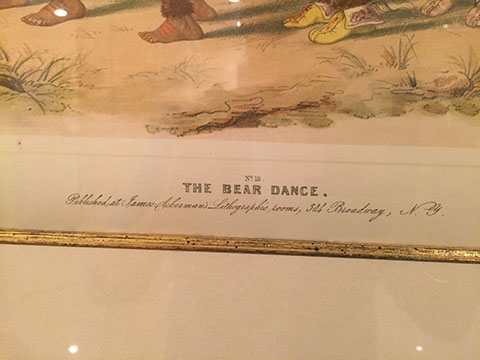 No. 18.
THE BEAR DANCE.
Published at James Ackerman's Lithographic rooms, 304 Broadway, N.Y.